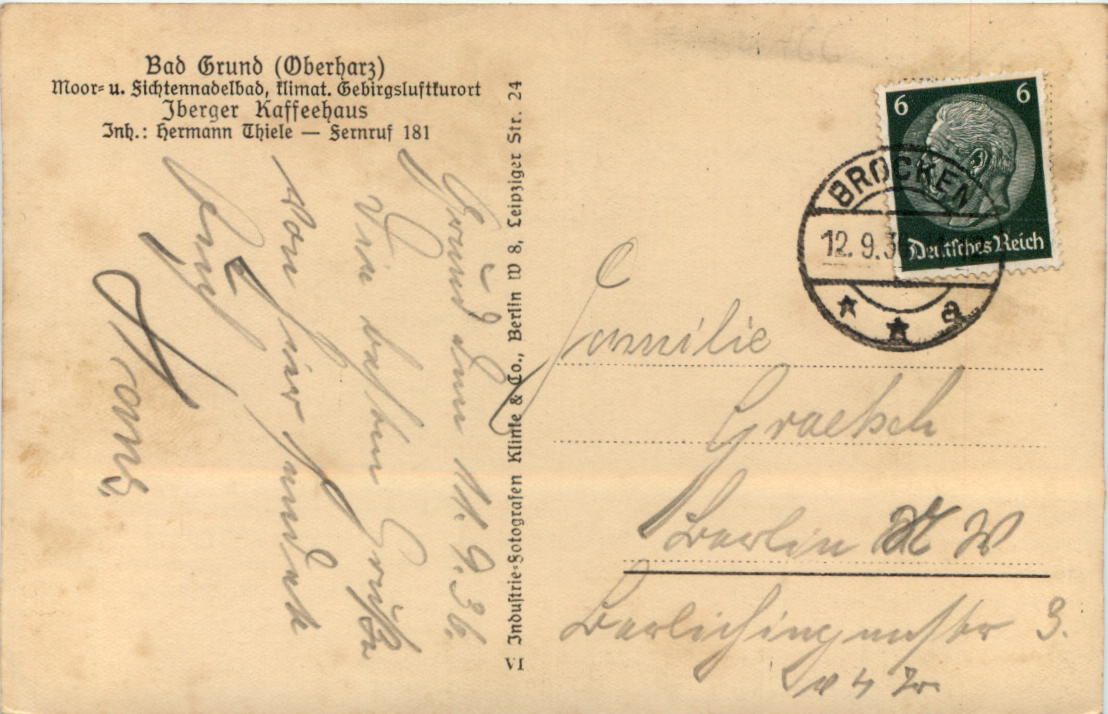 Bad Grund (Oberharz)
Moor- u. Fichtennadelbad, klimat. Gebirgsluftkurort
Iberger Kaffeehaus
Inh.: Hermann Thiele — Fernruf 181
Grund den 11.9.36.
Die besten Grüße
von hier sendet
Euch
Hans.
VI Industrie-Fotografen Klinke & Co., Berlin W 8, Leipziger Str. 24
6 6
Deutsches Reich
BROCKEN
12.9.3
a
Familie
Berlin N W
Berlichingenstr 3.